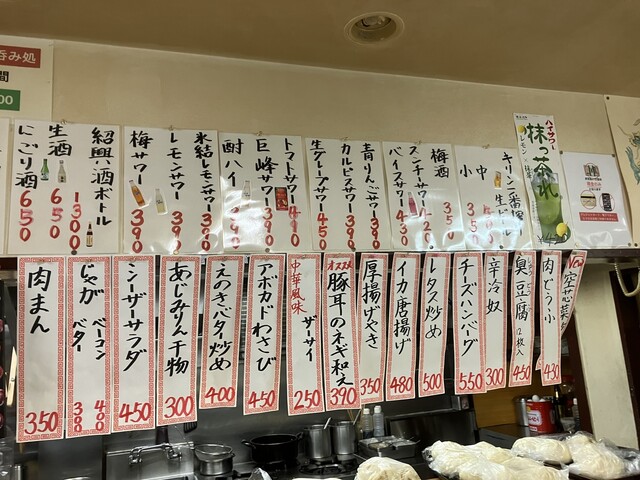 キリン一番搾り
生ビール
中
小
梅酒 350
スンチサワー 420
ベイスサワー 430
青りんごサワー 390
カルピスサワー 390
生グレープサワー 450
トマトサワー 490
巨峰サワー 390
酎ハイ
氷結レモンサワー 390
レモンサワー 390
梅サワー 390
紹興酒ボトル 1300
生酒 650
にごり酒 650
ハイサワー
レモン×抹茶
抹っ茶れ
呑み処
New
空芯菜
肉どうふ 430
臭豆腐 12枚入 450
辛冷奴 300
チーズハンバーグ 550
レタス炒め 500
イカ唐揚げ 480
厚揚げやき 350
オススメ
豚耳のネギ和え 390
中華風味
ザーサイ 250
アボカドわさび 450
えのきバター炒め 400
あじみりん干物 300
シーザーサラダ 450
じゃが
ベーコン 400
バター 300
肉まん 350